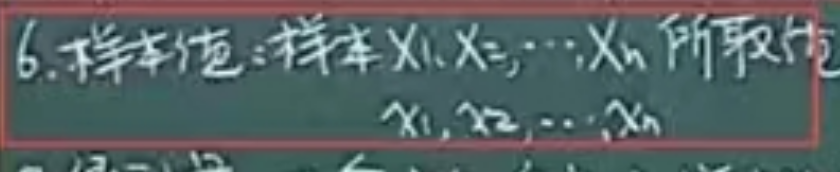 6.样本值:样本X1,X2,…,Xn所取值
x1,x2,…,xn